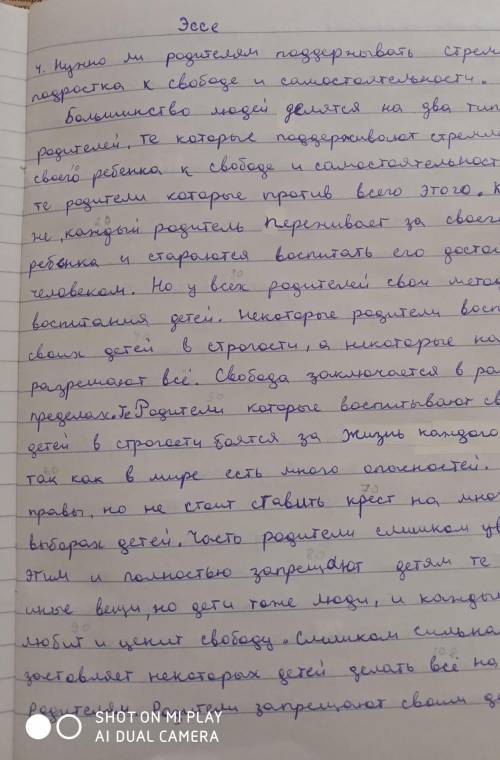 Эссе
4. Нужно ли родителям поддерживать стрем
подростка к свободе и самостоятельности.
Большинство людей делятся на два тип
родителей, те которые поддерживают стремл
своего ребенка к свободе и самостоятельност
те родители которые против всего этого. К
не, каждый родитель переживает за своег
ребенка и стараются воспитать его досто
человеком. Но у всех родителей свои мето
воспитания детей. Некоторые родители восп
своих детей в строгости, а никоторые на
разрешают всё. Свобода заключается в ра
пределах. Те Родители которые воспитывают св
детей в строгости боятся за жизнь каждого
так как в мире есть много опосностей.
правы, но не стоит ставить крест на мно
выборах детей. Часть родители слишком ув
этим и полностью запрещают детям те
иные вещи, но дети тоже люди, и кажды
любит и ценит свободу. Слишком сильна
заставляет некоторых детей делать всё на
родителям. Родители запрещают своим д
SHOT ON MI PLAY
AI DUAL CAMERA